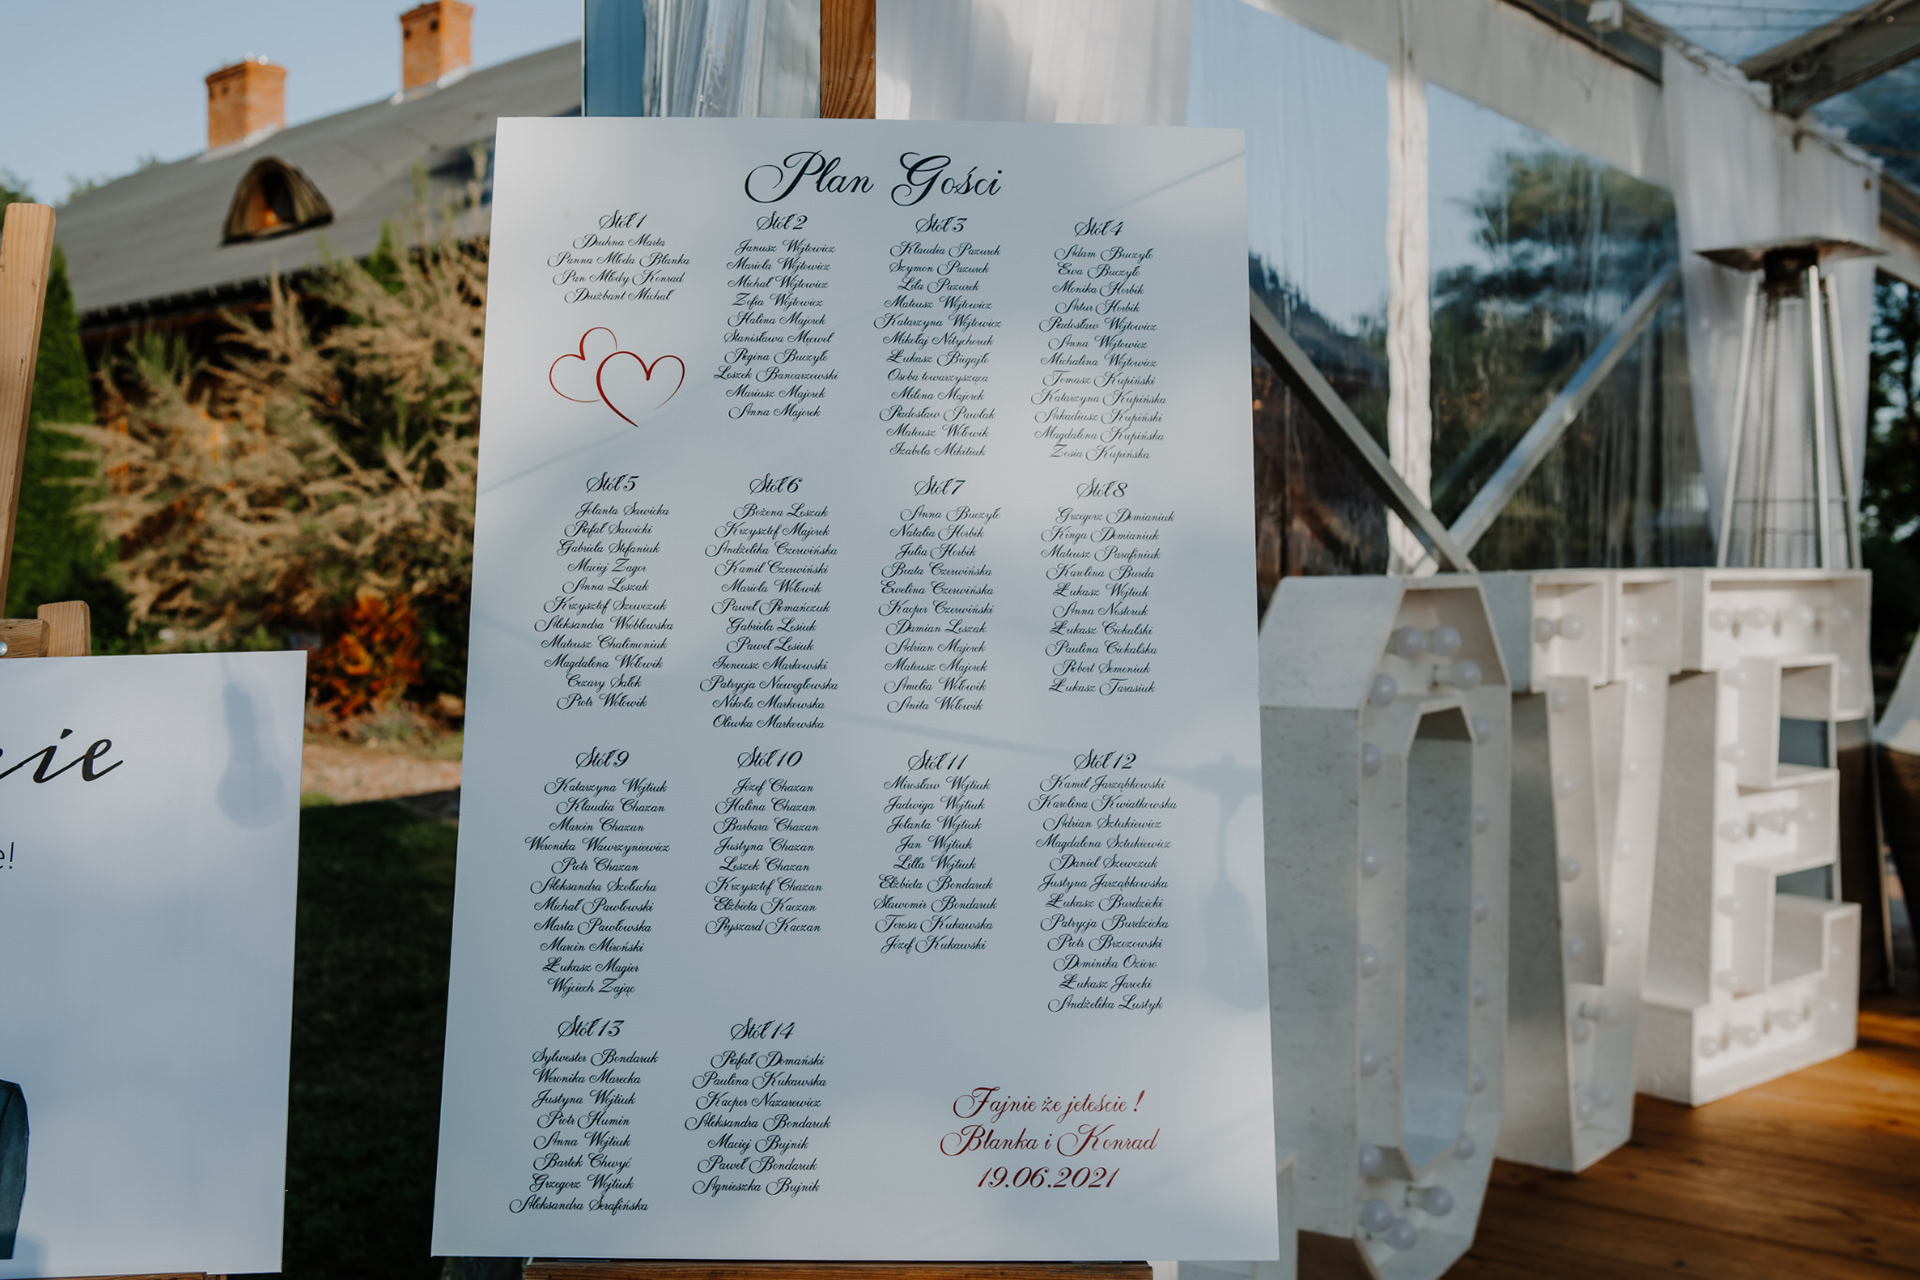 Plan Gości
Stół 1
Druhna Marta
Panna Młoda Blanka
Pan Młody Konrad
Drużbant Michał
Stół 2
Janusz Wójtowicz
Mariola Wójtowicz
Michał Wójtowicz
Zofia Wójtowicz
Halina Majorek
Stanisława Męcweł
Regina Buczyło
Leszek Bancarzewski
Mariusz Majorek
Anna Majorek
Stół 3
Klaudia Pazurek
Szymon Pazurek
Lila Pazurek
Mateusz Wójtowicz
Katarzyna Wójtowicz
Mikołaj Nitychoruk
Łukasz Biegajło
Osoba towarzysząca
Milena Majorek
Radosław Pawlak
Mateusz Wołowik
Izabela Mikitiuk
Stół 4
Adam Buczyło
Ewa Buczyło
Monika Horbik
Artur Horbik
Radosław Wójtowicz
Anna Wójtowicz
Michalina Wójtowicz
Tomasz Kupiński
Katarzyna Kupińska
Arkadiusz Kupiński
Magdalena Kupińska
Zosia Kupińska
Stół 5
Jolanta Sawicka
Rafał Sawicki
Gabriela Stefaniuk
Maciej Zagor
Anna Leszak
Krzysztof Szewczuk
Aleksandra Wróblewska
Mateusz Chalimoniuk
Magdalena Wołowik
Cezary Sałek
Piotr Wołowik
Stół 6
Bożena Leszak
Krzysztof Majorek
Andżelika Czerwińska
Kamil Czerwiński
Mariola Wołowik
Paweł Romańczuk
Gabriela Lesiuk
Paweł Lesiuk
Ireneusz Markowski
Patrycja Niewęgłowska
Nikola Markowska
Oliwka Markowska
Stół 7
Anna Buczyło
Natalia Horbik
Julia Horbik
Beata Czerwińska
Ewelina Czerwińska
Kacper Czerwiński
Damian Leszak
Adrian Majorek
Mateusz Majorek
Amelia Wołowik
Anita Wołowik
Stół 8
Grzegorz Demianiuk
Kinga Demianiuk
Mateusz Parafiniuk
Karolina Burda
Łukasz Wójtiuk
Anna Nesteruk
Łukasz Ciekalski
Paulina Ciekalska
Robert Semeniuk
Łukasz Tarasiuk
Stół 9
Katarzyna Wójtiuk
Klaudia Chazan
Marcin Chazan
Weronika Wawrzyniewicz
Piotr Chazan
Aleksandra Szołucha
Michał Pawłowski
Marta Pawłowska
Marcin Miroński
Łukasz Magier
Wojciech Zając
Stół 10
Józef Chazan
Halina Chazan
Barbara Chazan
Justyna Chazan
Leszek Chazan
Krzysztof Chazan
Elżbieta Kaczan
Ryszard Kaczan
Stół 11
Mirosław Wójtiuk
Jadwiga Wójtiuk
Jolanta Wójtiuk
Jan Wójtiuk
Lilla Wójtiuk
Elżbieta Bondaruk
Sławomir Bondaruk
Teresa Kukawska
Józef Kukawski
Stół 12
Kamil Jarząbkowski
Karolina Kwiatkowska
Adrian Sztukiewicz
Magdalena Sztukiewicz
Daniel Szewczuk
Justyna Jarząbkowska
Łukasz Burdzicki
Patrycja Burdzicka
Piotr Brzozowski
Dominika Oziero
Łukasz Jarocki
Andżelika Lustyk
Stół 13
Sylwester Bondaruk
Weronika Marecka
Justyna Wójtiuk
Piotr Humin
Anna Wójtiuk
Bartek Chwyć
Grzegorz Wójtiuk
Aleksandra Serafińska
Stół 14
Rafał Domański
Paulina Kukawska
Kacper Nazarewicz
Aleksandra Bondaruk
Maciej Bujnik
Paweł Bondaruk
Agnieszka Bujnik
Fajnie że jeteście !
Blanka i Konrad
19.06.2021